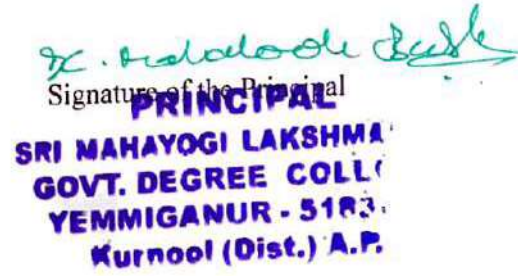 Signature of the Principal
PRINCIPAL
SRI MAHAYOGI LAKSHMA
GOVT. DEGREE COLL
YEMMIGANUR - 5183
Kurnool (Dist.) A.P.